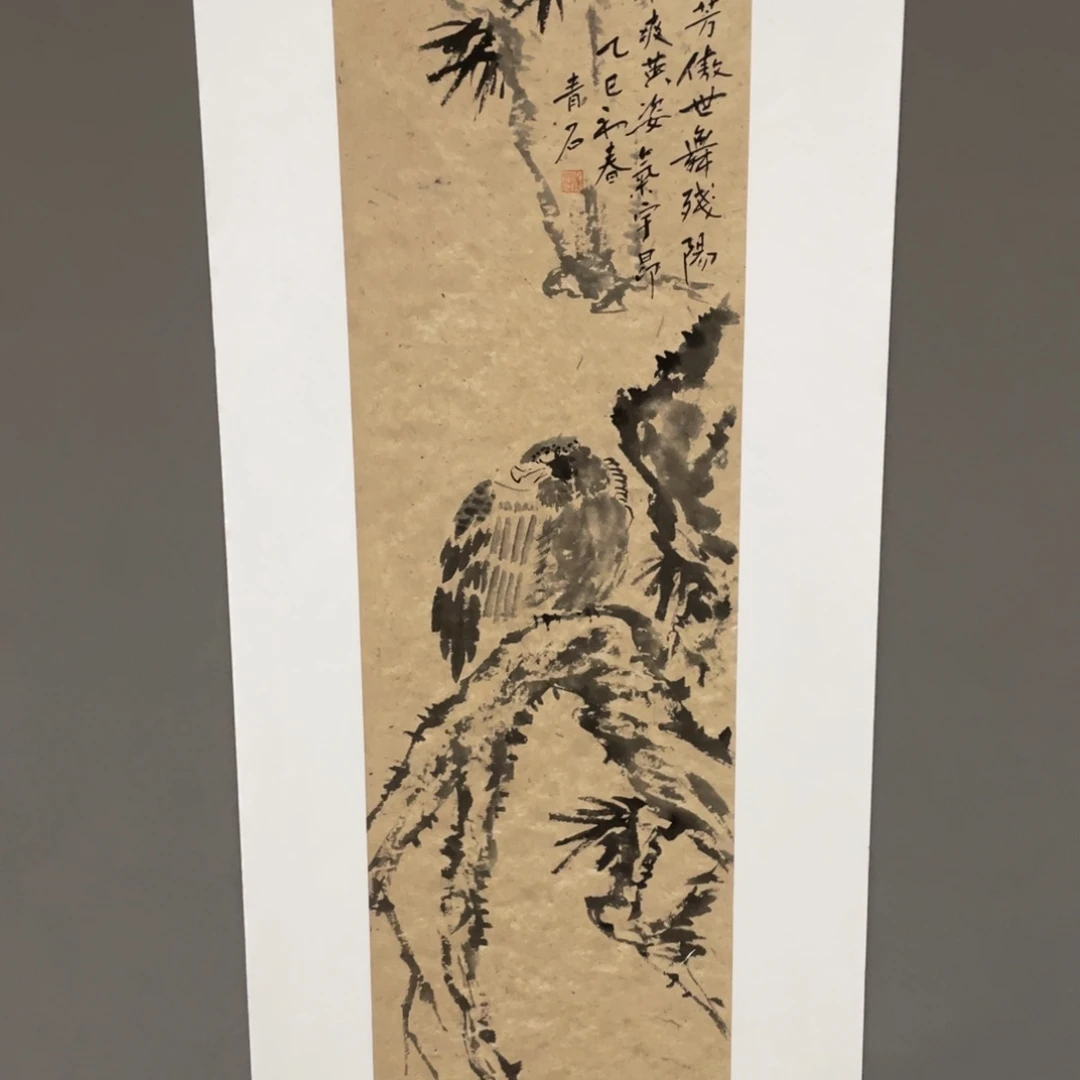 芳傲世舞残陽
爽英姿氣宇昂
乙巳初春
青石